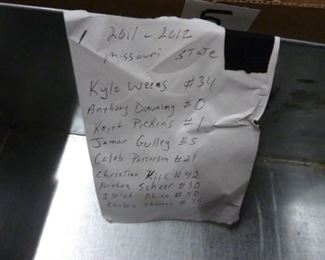 2011-2012
Missouri State
Kyle Weems #34
Anthony Downing #0
Keith Pickens #1
Jamar Gulley #5
Caleb Patterson #21
Christian Kirk #42
Nathan Scheer #30
Isaiah Rhine #50
Thomas #35
5